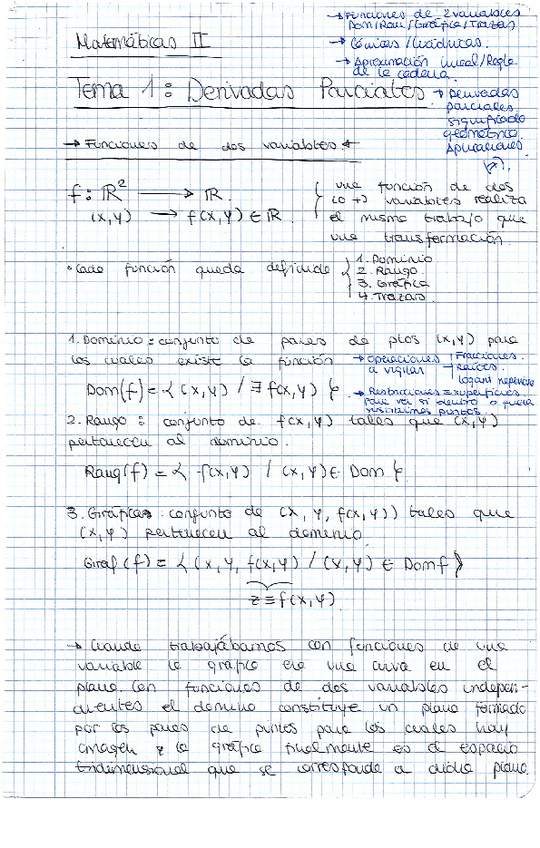 → Funciones de 2 variables
Dom/Ran/Gráfica/Trazas
Matemáticas II
→ Cónicas/Cuádricas
→ Aproximación lineal/Regla
de la cadena.
Tema 1: Derivadas Parciales
→ Derivadas
parciales
significado
geométrico.
Aplicaciones
→ Funciones de dos variables ←
f: ℝ² → ℝ.
(x,y) → f(x,y) ∈ ℝ.
{ una función de dos
(o +) variables realiza
el mismo trabajo que
una transformación.
• Cada función queda definida { 1. Dominio
2. Rango.
3. Gráfica
4. Trazas.
1. Dominio: conjunto de pares de ptos (x,y) para
los cuales existe la función → operaciones a vigilar { Fracciones.
raíces.
logaritmo neperiano
Dom(f) = { (x,y) / ∃ f(x,y) }.
→ Restricciones = superficies
para ver si dentro o fuera
sustituimos puntos.
2. Rango: conjunto de f(x,y) tales que (x,y)
pertenecen al dominio.
Rang(f) = { f(x,y) / (x,y) ∈ Dom }
3. Gráfica: conjunto de (x, y, f(x,y)) tales que
(x,y) pertenecen al dominio.
Graf(f) = { (x,y, f(x,y) / (x,y) ∈ Domf }
z ≡ f(x,y)
→ Cuando trabajábamos con funciones de una
variable la gráfica era una curva en el
plano. Con funciones de dos variables indepen-
dientes el dominio constituye un plano formado
por los pares de puntos para los cuales hay
imagen y la gráfica finalmente es el espacio
tridimensional que se corresponde a dicho plano.